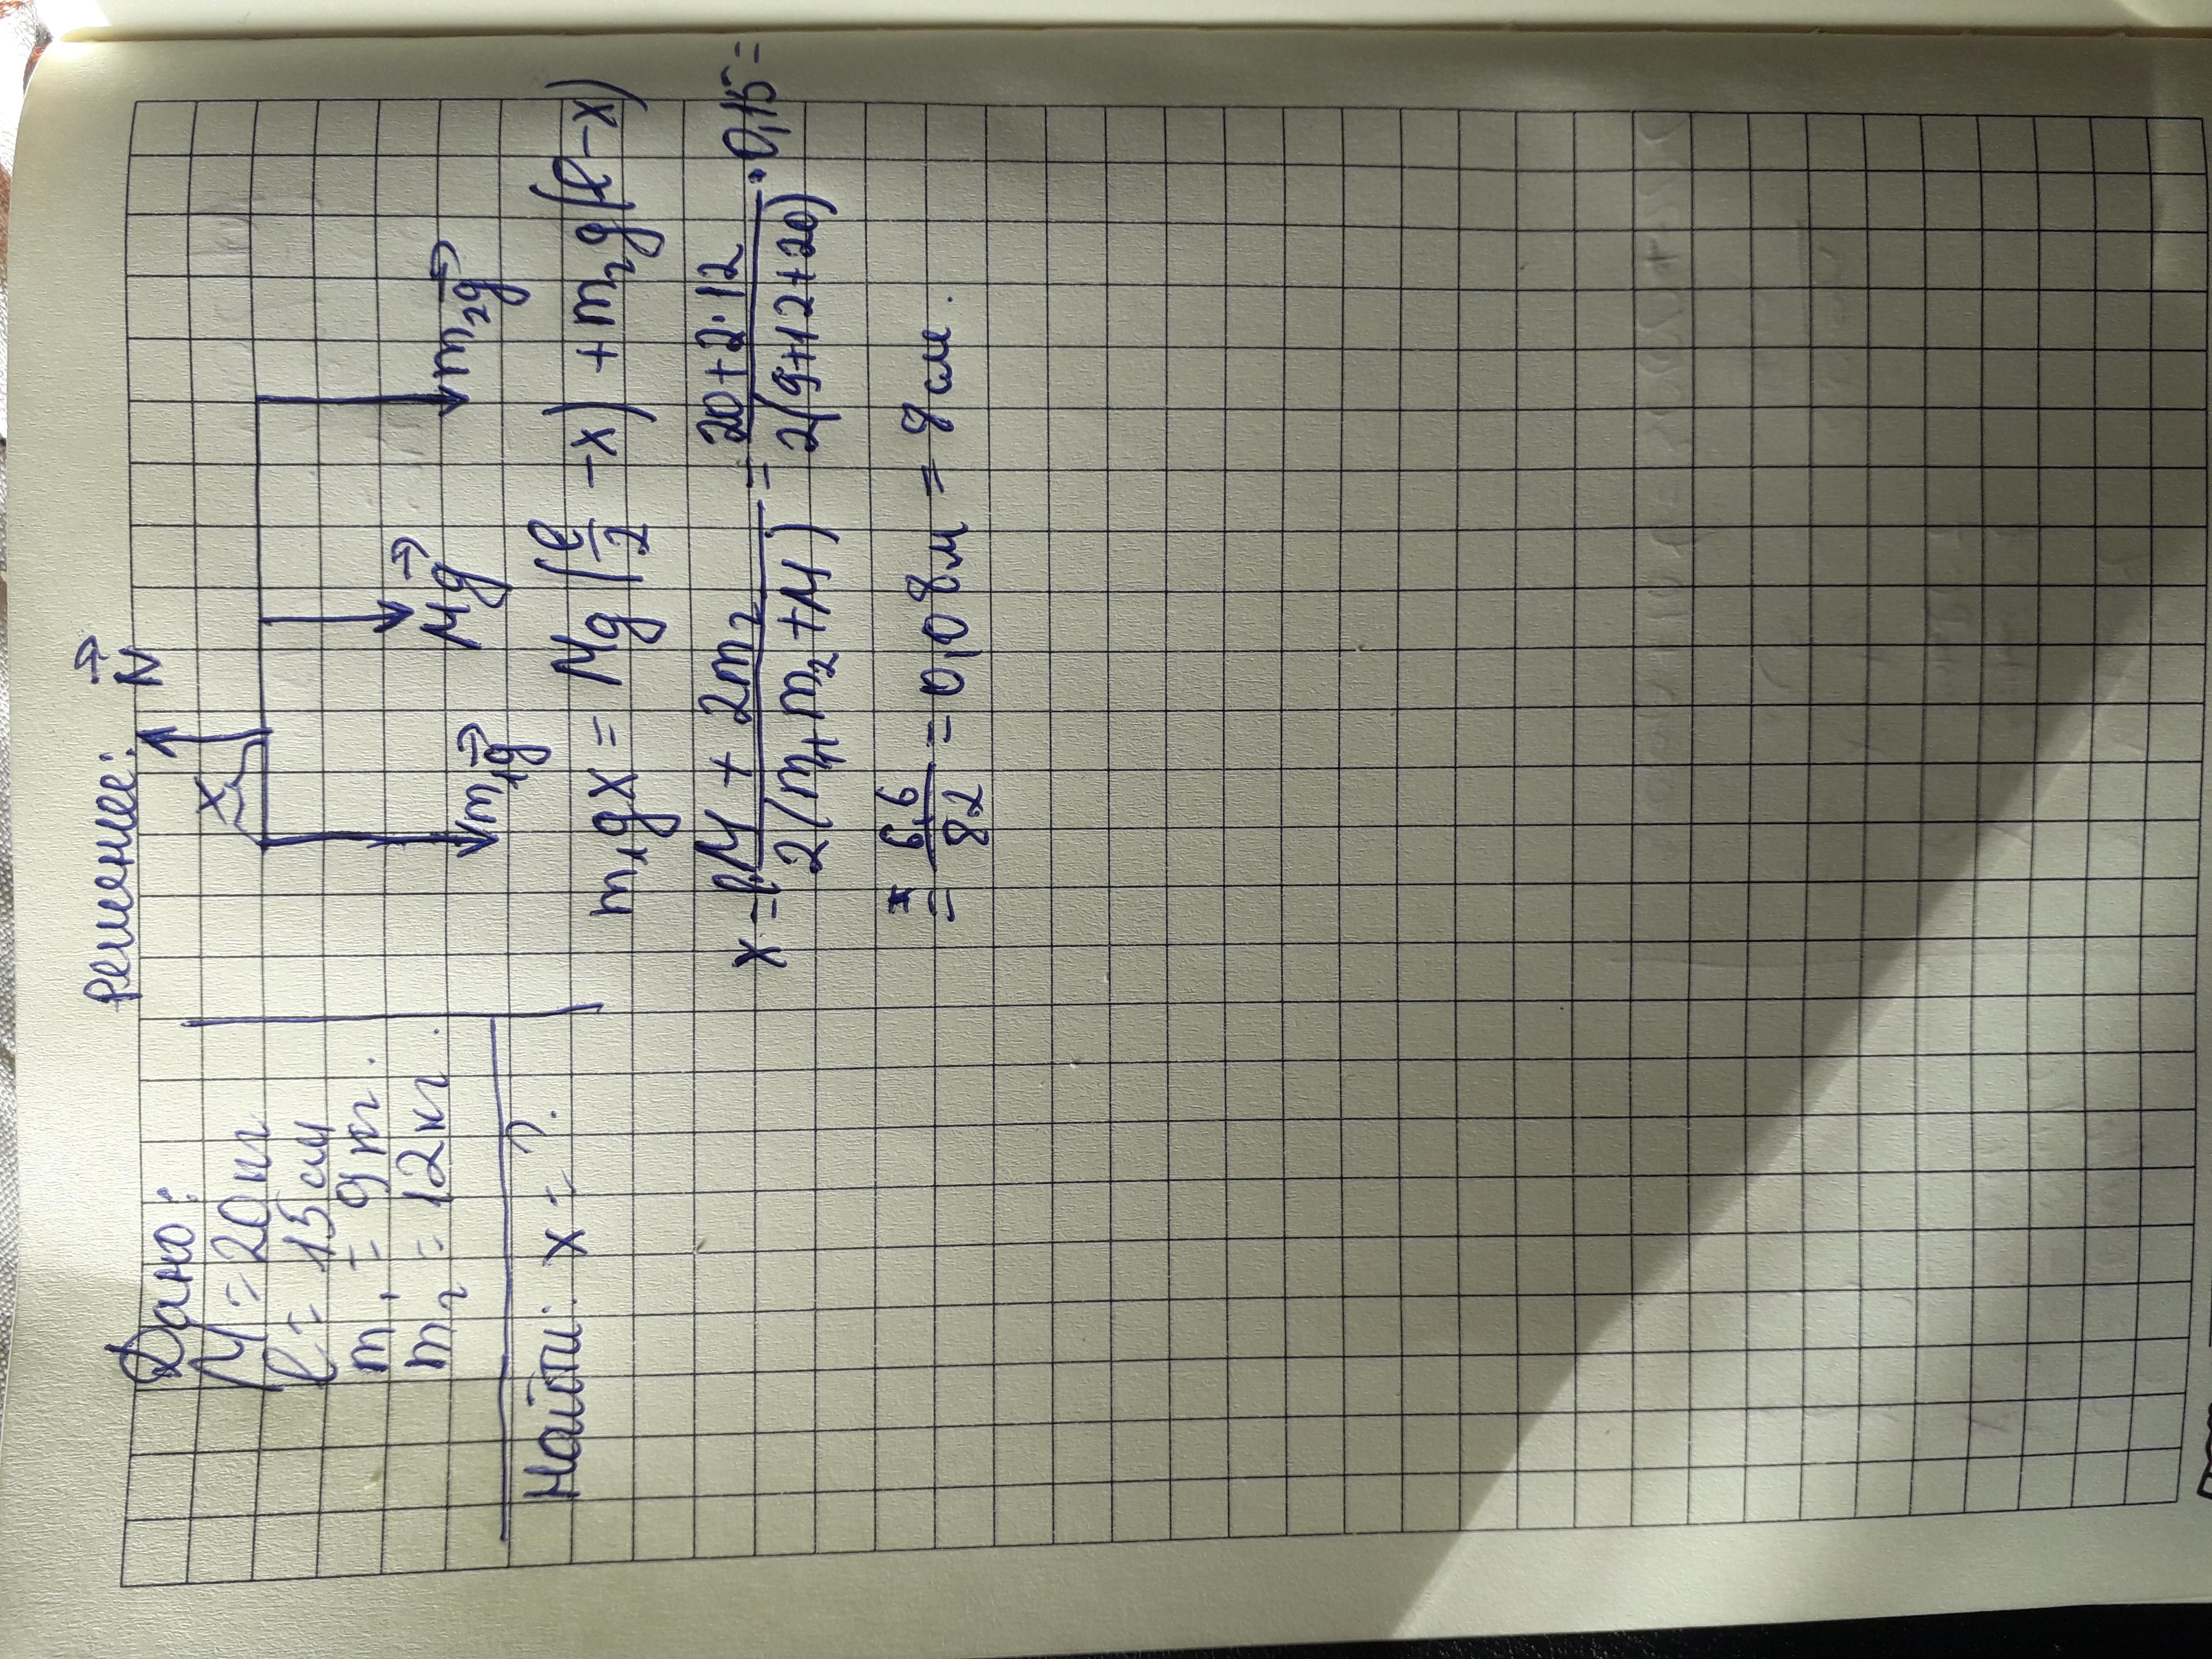 Дано:
M = 20 кг
l = 15 см
m₁ = 9 кг.
m₂ = 12 кг.
Найти: x = ?.
Решение:
N⃗
x
m₁g⃗
Mg⃗
m₂g⃗
m₁gx = Mg(l/2 -x) + m₂g(l-x)
x = l(M + 2m₂)/2(m₁+m₂+M) = (20+2·12)/2(9+12+20) · 0,15 =
= 6,6/82 = 0,08 м = 8 см.